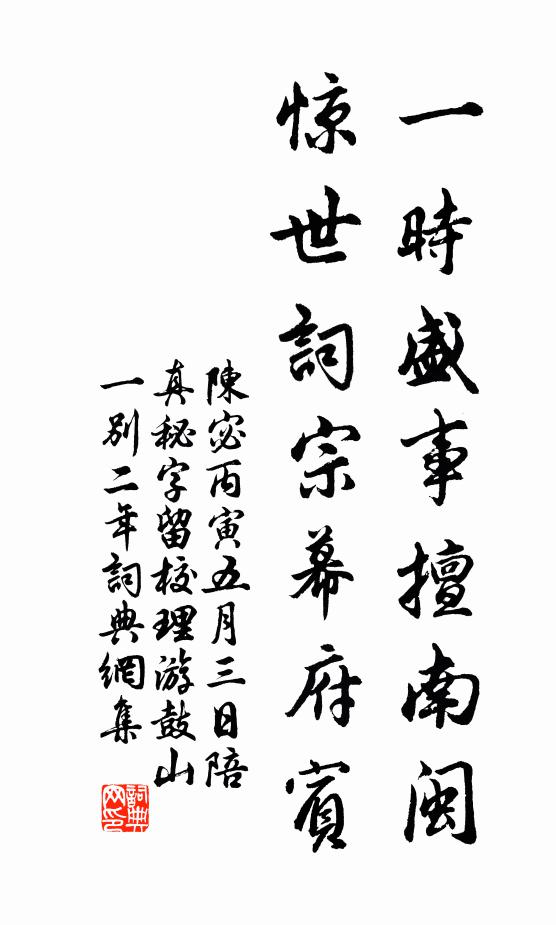 一時盛事擅南閩
惊世詞宗幕府賓
陳宓丙寅五月三日陪
真秘字留校理游鼓山
一别二年詞典網集
詞典网印